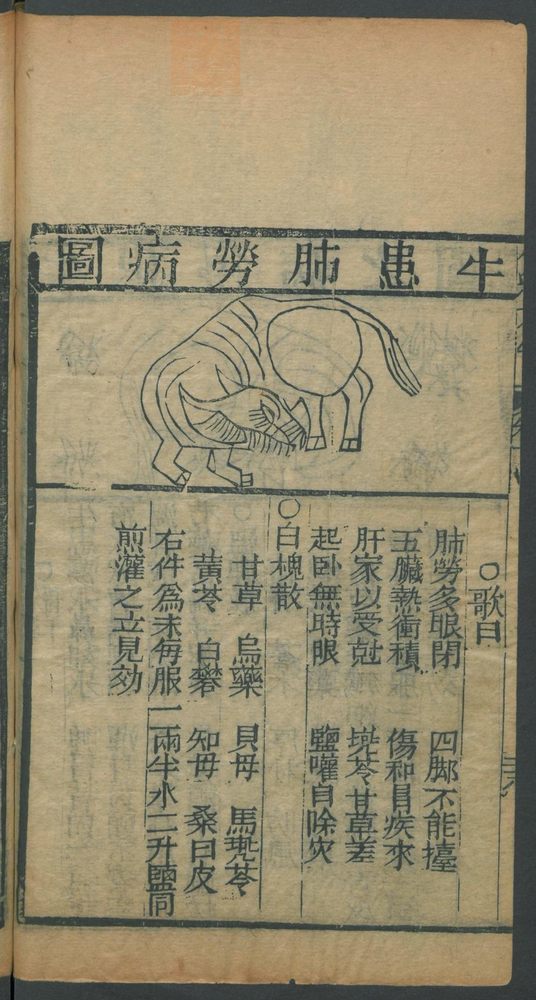 牛患肺勞病圖
○歌曰
肺勞多眼閉 四脚不能擡
五臟熱衝積 傷和目疾來
肝家以受尅 兠苓甘草差
起卧無時眼 鹽嚾自除灾
○白槐散
甘草 烏藥 貝母 馬兠苓
黃芩 白礬 知母 桑白皮
右件爲末每服一兩半水二升鹽同
煎灌之立見効